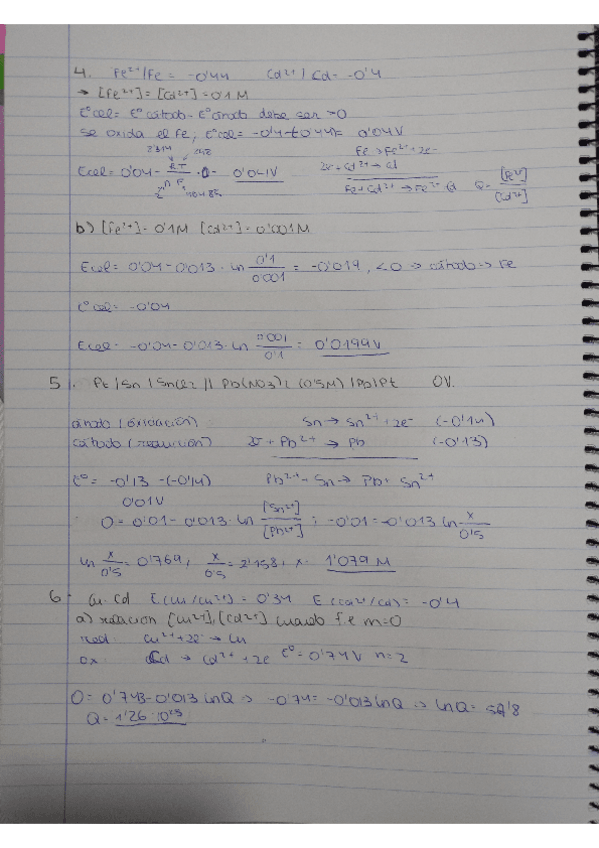 4. Fe²⁺/Fe = -0'44 Cd²⁺/Cd = -0'4
→ [Fe²⁺] = [Cd²⁺] = 0'1 M
E°cel = E°cátodo - E°ánodo debe ser >0
se oxida el Fe; E°cel = -0'4-(-0'44) = 0'04V
8'31M 298
Fe → Fe²⁺ + 2e⁻
Ecel = 0'04 - RT/nF · 0 = 0'041V 2e⁻ + Cd²⁺ → Cd
2 96485 Fe + Cd²⁺ → Fe²⁺ Cd Q = [Fe²⁺]/[Cd²⁺]
b) [Fe²⁺] = 0'1M [Cd²⁺] = 0'001M
Ecel = 0'04 - 0'013 · ln 0'1/0'001 = -0'019, <0 → cátodo → Fe
E°cel = -0'04
Ecel = -0'04 - 0'013 · ln 0'001/0'1 = 0'0199V
5. Pt | Sn | SnCl2 || Pb(NO3)2 (0'5M) | Pb | Pt 0V.
ánodo (oxidación) Sn → Sn²⁺ + 2e⁻ (-0'14)
cátodo (reducción) 2e⁻ + Pb²⁺ → Pb (-0'13)
E° = -0'13 - (-0'14) Pb²⁺ + Sn → Pb + Sn²⁺
0'01V
0 = 0'01 - 0'013 · ln [Sn²⁺]/[Pb²⁺] ; -0'01 = -0'013 ln x/0'5
ln x/0'5 = 0'769, x/0'5 = 2'158, x = 1'079 M
6. Cu-Cd E(Cu/Cu²⁺) = 0'34 E(Cd²⁺/Cd) = -0'4
a) relación [Cu²⁺], [Cd²⁺] cuando f.e m=0
red. Cu²⁺ + 2e⁻ → Cu
ox. Cd → Cd²⁺ + 2e E° = 0'74V n=2
0 = 0'743 - 0'013 ln Q → -0'74 = -0'013 ln Q → ln Q =
Q = 1'26 · 10²⁵